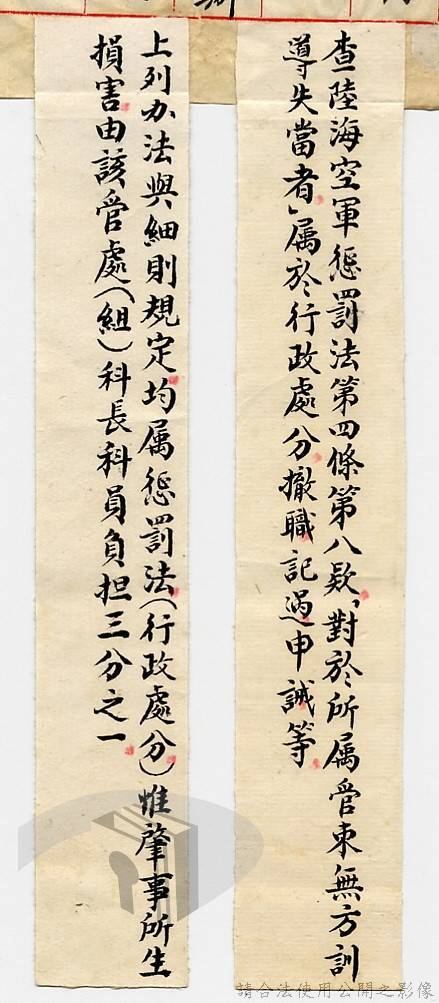 查陸海空軍懲罰法第四條第八款「對於所属管束無方訓
導失當者」属於行政處分撤職記過申誡等
上列办法與細則規定均属懲罰法（行政處分）惟肇事所生
損害由該管處（組）科長科員負担三分之一
請合法使用公開之影像